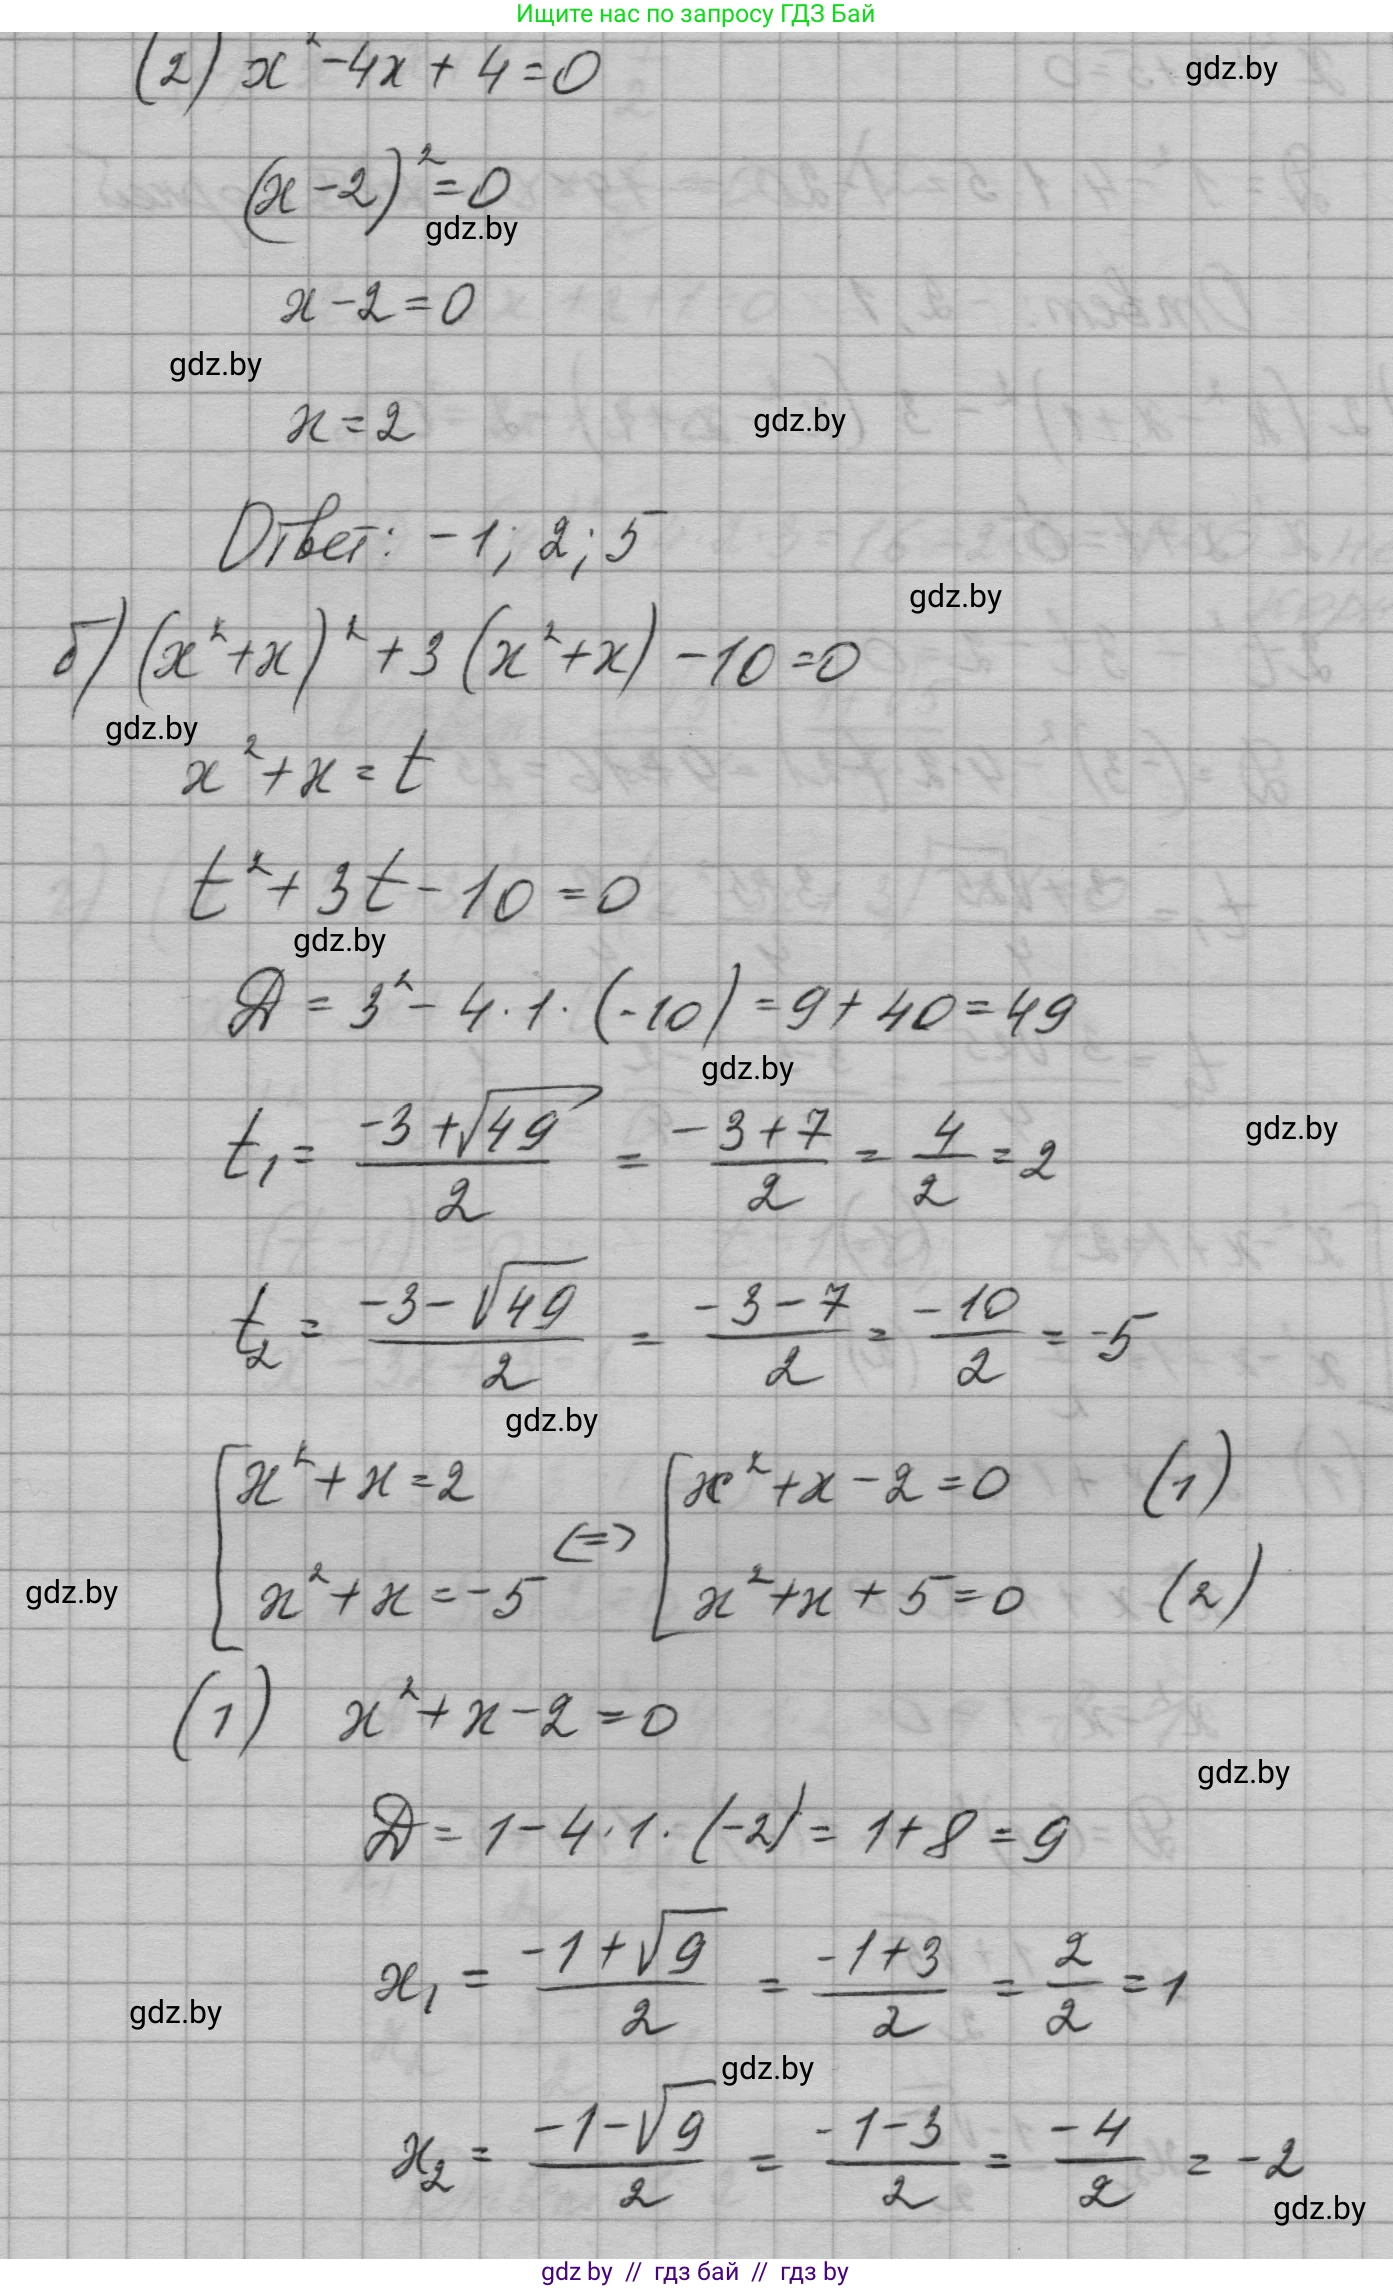 Ищите нас по запросу ГДЗ Бай
(2) x² - 4x + 4 = 0
gdz.by
(x - 2)² = 0
gdz.by
x - 2 = 0
gdz.by
x = 2
gdz.by
Ответ: -1; 2; 5
gdz.by
б) (x² + x)² + 3 (x² + x) - 10 = 0
gdz.by
x² + x = t
t² + 3t - 10 = 0
gdz.by
D = 3² - 4 · 1 · (-10) = 9 + 40 = 49
gdz.by
t₁ = (-3 + √49)/2 = (-3 + 7)/2 = 4/2 = 2
gdz.by
t₂ = (-3 - √49)/2 = (-3 - 7)/2 = -10/2 = -5
gdz.by
[ x² + x = 2 <=> [ x² + x - 2 = 0 (1)
x² + x = -5 x² + x + 5 = 0 (2)
gdz.by
(1) x² + x - 2 = 0
gdz.by
D = 1 - 4 · 1 · (-2) = 1 + 8 = 9
x₁ = (-1 + √9)/2 = (-1 + 3)/2 = 2/2 = 1
gdz.by
gdz.by
x₂ = (-1 - √9)/2 = (-1 - 3)/2 = -4/2 = -2
gdz.by
gdz by // гдз бай // гдз by